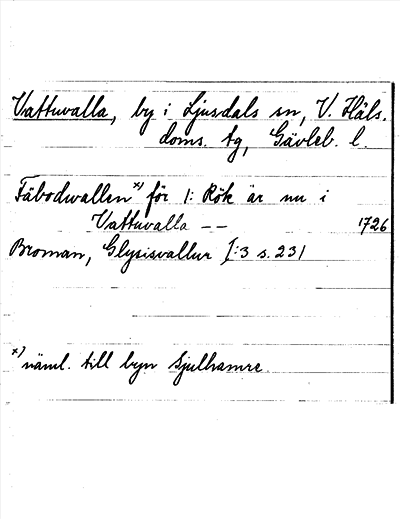 Vattuvalla, by i Ljusdals sn, V. Häls.
doms. tg, Gävleb. l.
Fäbodwallen x) för 1: Rök är nu i
Vattuvalla -- 1726
Broman, Glysisvallur I:3 s. 231
x) näml. till byn Sjulhamre